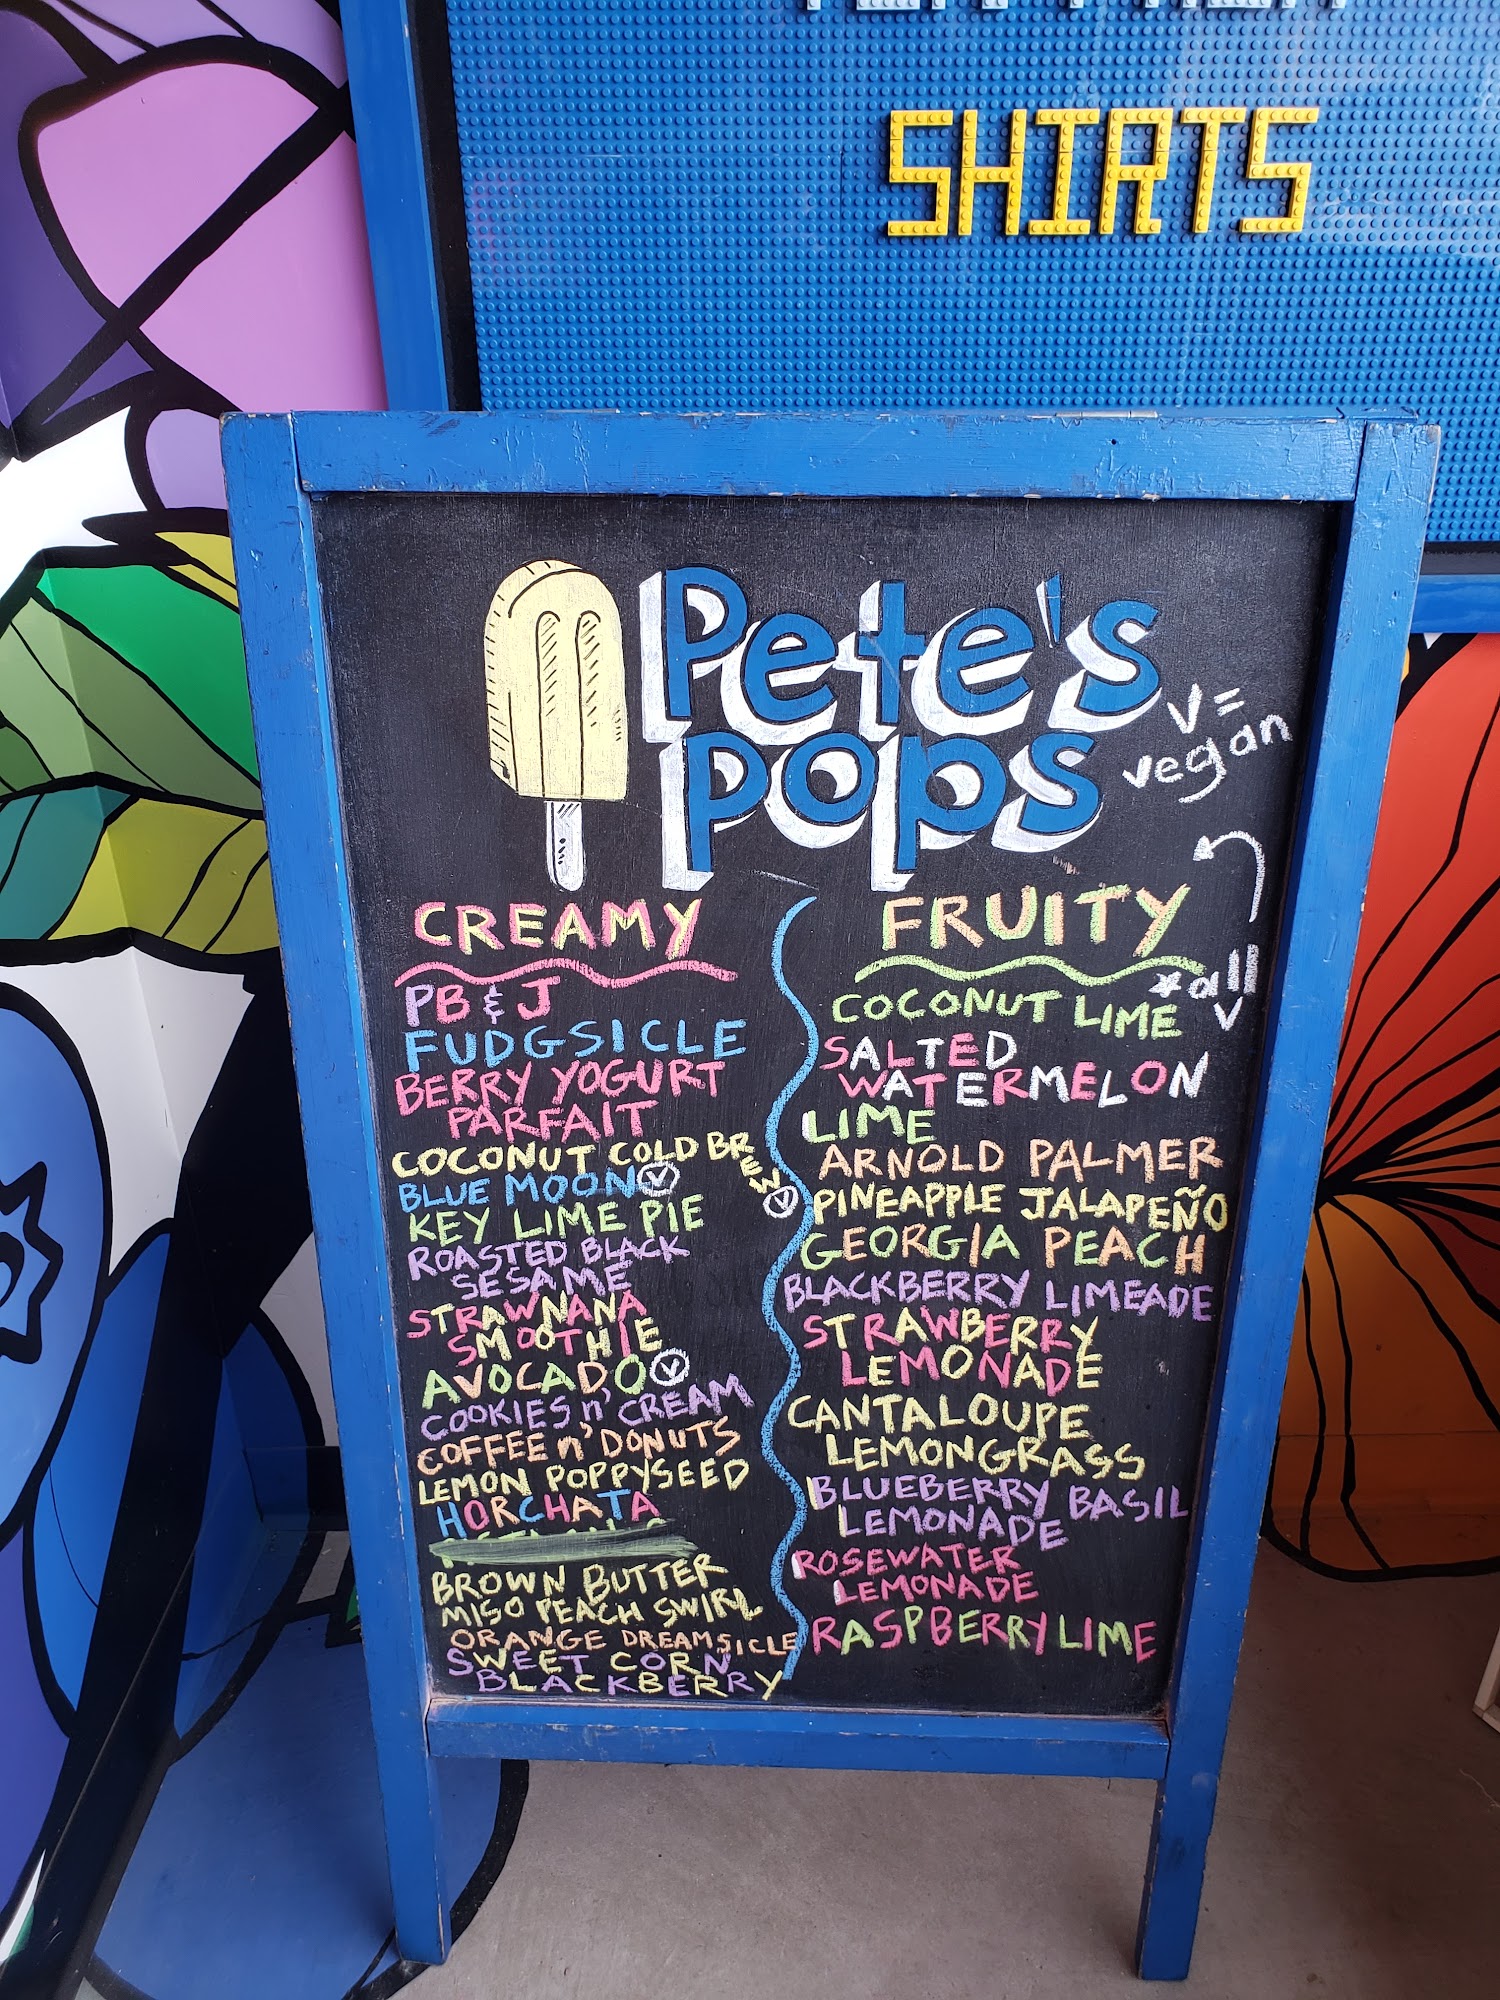 SHIRTS
Pete's
pops
V=
vegan
CREAMY
PB & J
FUDGSICLE
BERRY YOGURT
PARFAIT
COCONUT COLD BREW Ⓥ
BLUE MOON Ⓥ
KEY LIME PIE
ROASTED BLACK
SESAME
STRAWNANA
SMOOTHIE
AVOCADO Ⓥ
COOKIES n' CREAM
COFFEE n' DONUTS
LEMON POPPYSEED
HORCHATA
BROWN BUTTER
MISO PEACH SWIRL
ORANGE DREAMSICLE
SWEET CORN
BLACKBERRY
FRUITY
*all
V
COCONUT LIME
SALTED
WATERMELON
LIME
ARNOLD PALMER
PINEAPPLE JALAPEÑO
GEORGIA PEACH
BLACKBERRY LIMEADE
STRAWBERRY
LEMONADE
CANTALOUPE
LEMONGRASS
BLUEBERRY BASIL
LEMONADE
ROSEWATER
LEMONADE
RASPBERRY LIME